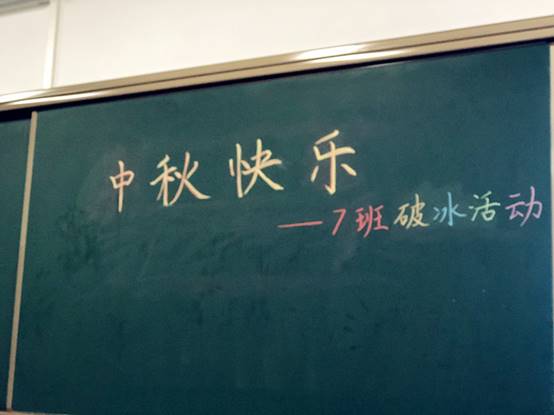 中秋快乐
—7班破冰活动